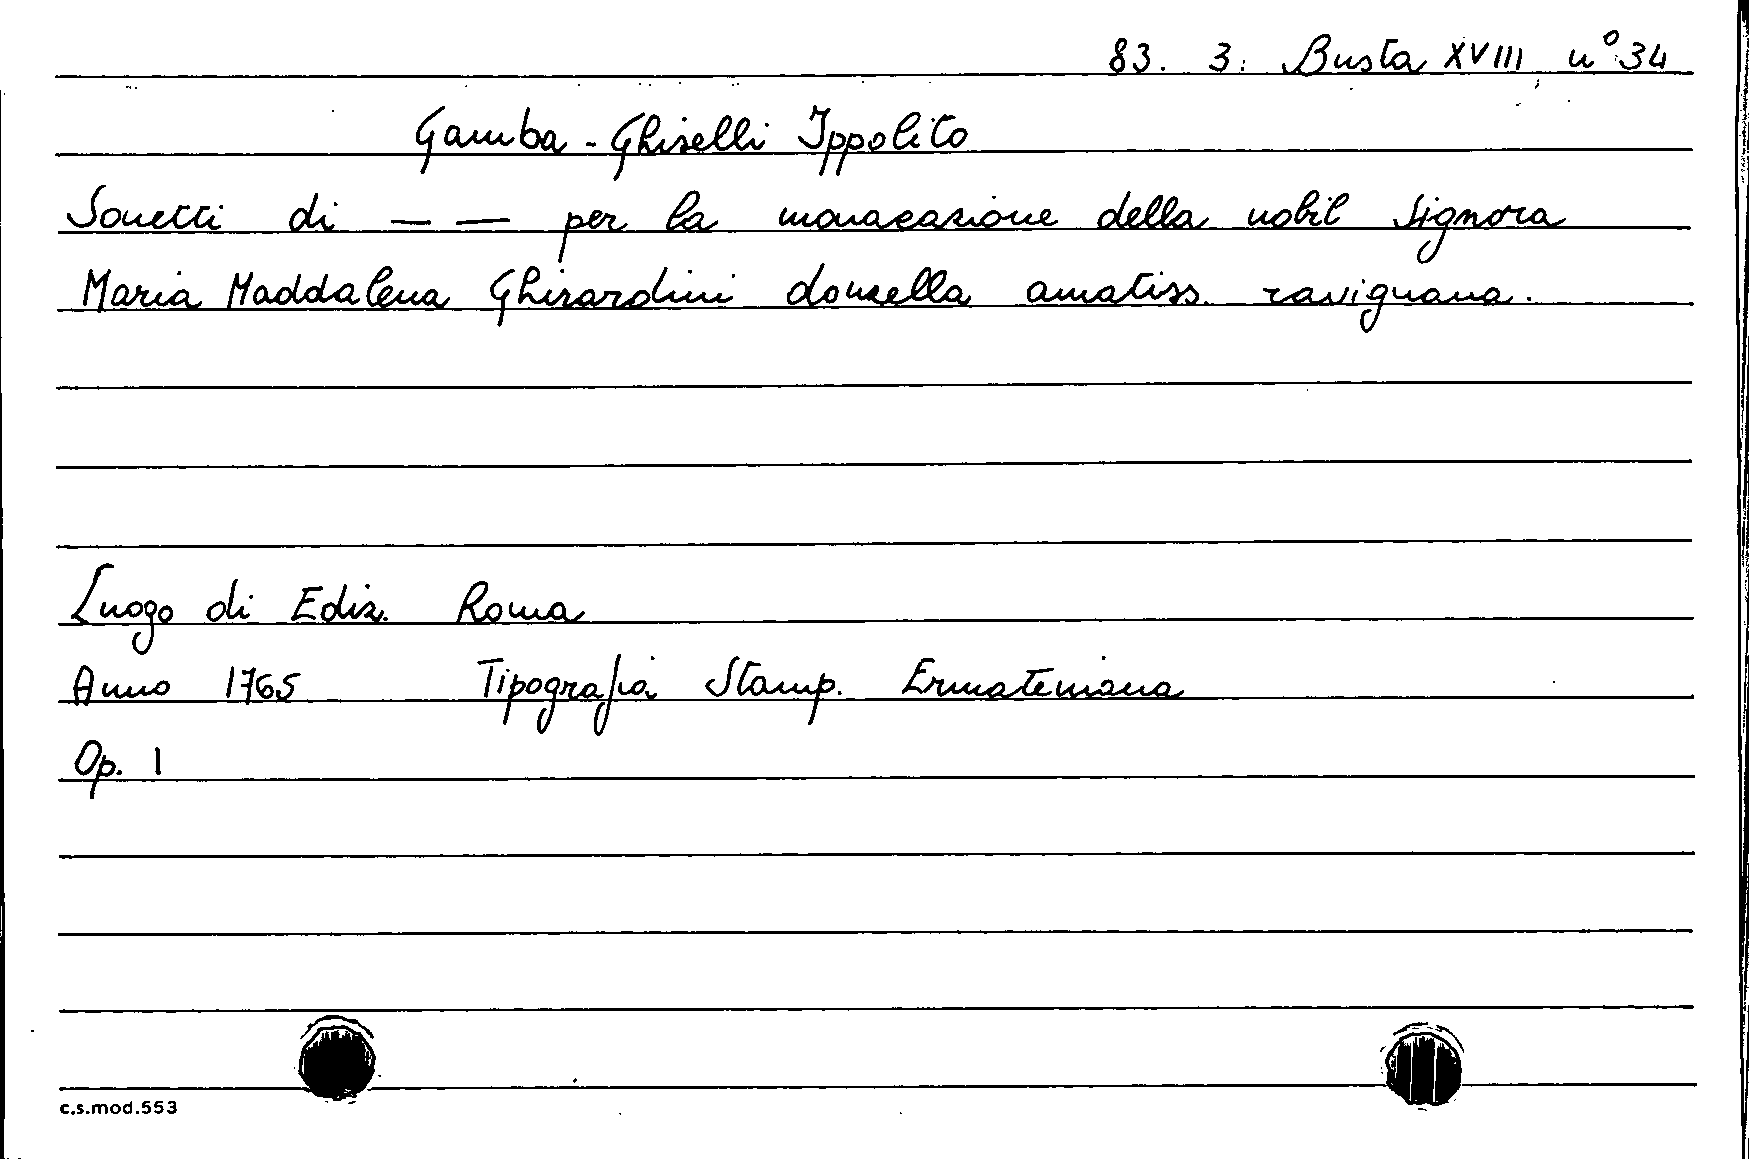 83. 3. Busta XVIII n° 34
Gamba - Ghiselli Ippolito
Sonetti di — — per la monacazione della nobil Signora
Maria Maddalena Ghirardini donzella amatiss. ravignana.
Luogo di Ediz. Roma
Anno 1765 Tipografia Stamp. Ermateniana
Op. 1
c.s.mod.553